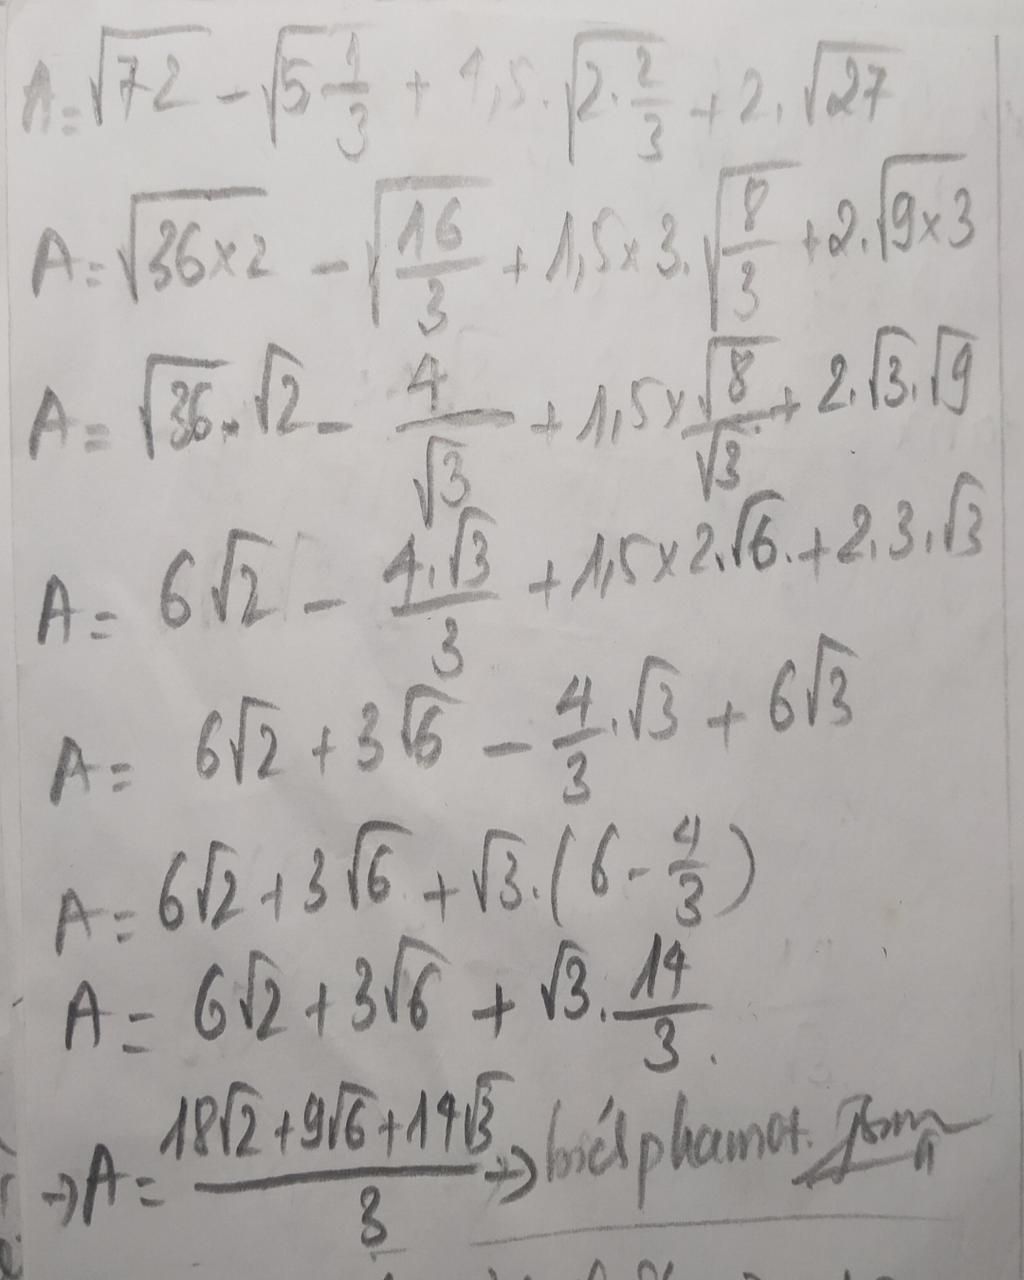 A = √72 - √5 1/3 + 4,5 . √2 . 2/3 + 2 . √27
A = √36×2 - √16/3 + 1,5 × 3 . √8/3 + 2 . √9×3
A = √36 . √2 - 4/√3 + 1,5 × √8/√3 + 2 . √3 . √9
A = 6√2 - 4.√3/3 + 1,5 × 2.√6 . + 2.3.√3
A = 6√2 + 3√6 - 4/3 . √3 + 6√3
A = 6√2 + 3√6 + √3 . (6 - 4/3)
A = 6√2 + 3√6 + √3 . 14/3 .
→ A = 18√2 + 9√6 + 14√3/3 →